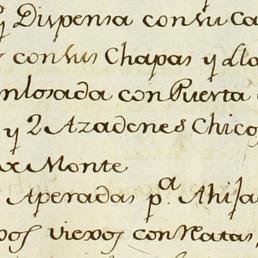 Dispensa con su Ca
con sus Chapas y Lla
enlosada con Puerta
y 2 Azadenes Chicos
Monte
Aperadas p.a Ahija
viexos con Reatas